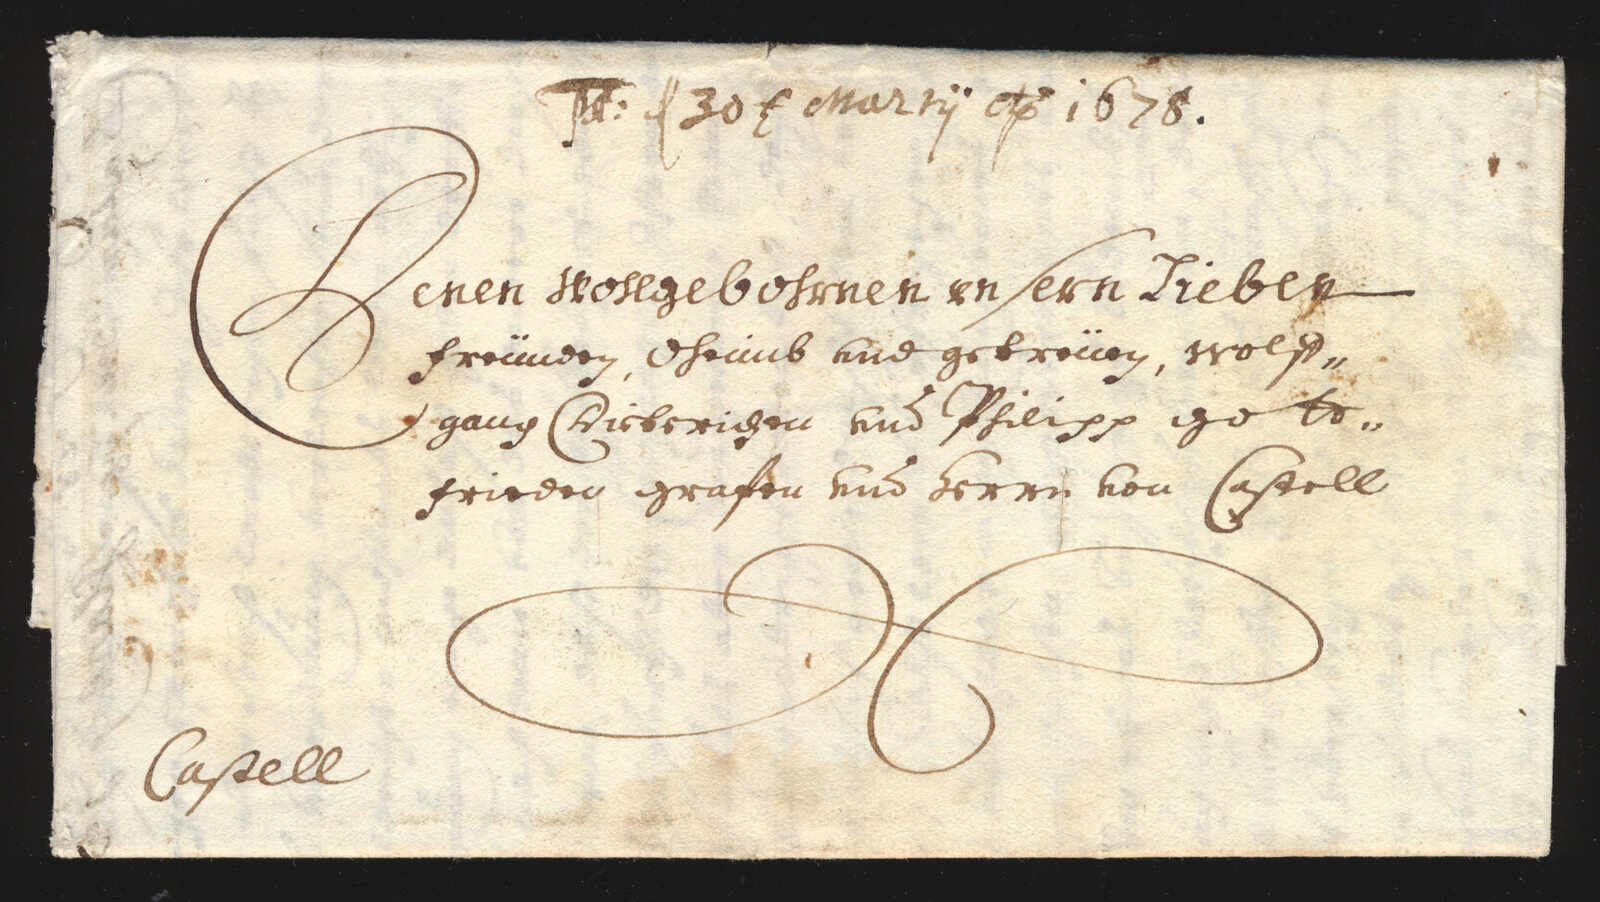 Pt: d 30t Martij Ao 1678.
Denen Wollgebohrnen unsern Lieben
freünden, Oheimb und getreüen, Wolff„
gang Dieterichen und Philipp Gott„
frieden grafen und Herrn von Castell
Castell